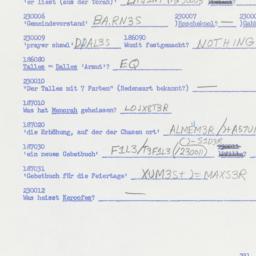 230006 230007
'Gemeindevorstand' BA.RN3S
230009 186090
'prayer shawl' DDAL3S Womit festgemacht? NOTHING
186080
Talles = Salles 'Armut'? EQ
230010
"Der Talles mit 7 Farben" (Redensart bekannt?) —
187010
Was hat Menorah geheissen? LOIX8T3R
187020
'die Erhöhung, auf der der Chasen ort' ALMEM3R
187030
'ein neues Gebetbuch' F1L3/T3F1L3 (/230011)
187031
'Gebetbuch für die Feiertage' XUM3S+)=MAXS3R
230012
Was heisst Karpofes? —